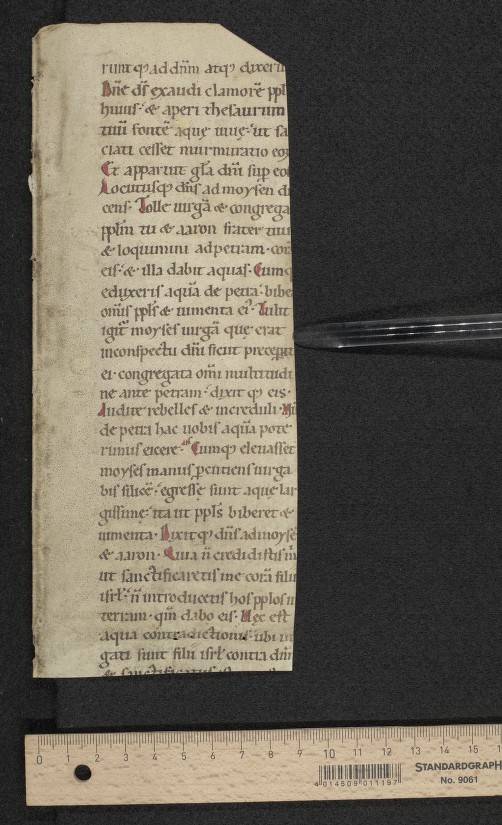 runt q; ad dnm atq; dixeru
Dne ds exaudi clamorē ppl
huius· & aperi thesaurum
tuū fontē aquę uiuę· ut sa
ciati cesset murmuratio eoꝝ
Et apparuit gła dn̄i sup eo
Locutusq; dn̄s ad moysen di
cens· Tolle uirgā & congrega
pplm̄ tu & aaron frater tuu
& loquimini ad petram· corā
eis· & illa dabit aquas· Cumq
eduxeris aquā de petra· bibe
omīs ppl̄s & iumenta eı'· Tulit
igit̄ moyses uirgā quę erat
inconspectu dn̄i sicut precepat
ei· congregata om̄i multitudi
ne ante petram· dixit q; eis·
Audite rebelles & increduli· Nū
de petra hac uobis aquā pote
rimus eicere· Cumq; eleuasset
moyses manū pcutiens uirga
bis silicē· egressę sunt aquę lar
gissimę· ita ut ppl̄s biberet &
iumenta· Dixitq; dn̄s ad moysē
& aaron· Quia n̄ credidistis m
ut sanctificaretis me corā filii
isrł· n̄ introducetis hos pplos i
terram· quā dabo eis· Hęc est
aqua contradictionis· ubi iur
gati sunt filii isrł contra dn̄
& sanctificatus